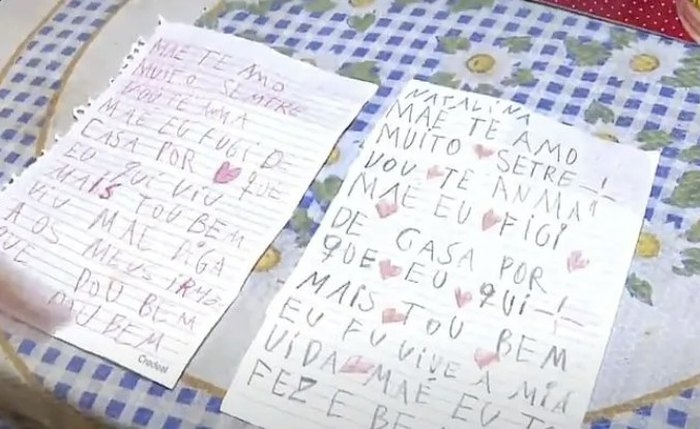 MÃE TE AMO
MUITO SEMPRE
VOU TE AMA
MÃE EU FUGI DE
CASA POR QUE
EU QUI VIU
MAIS TOU BEM
VIU MÃE DIGA
A OS MEUS IRMÃ
QUE TOU BEM
TOU BEM
Credeal
NATALINA
MÃE TE AMO
MUITO SETRE_!
VOU TE ANMA!
MÃE EU FIGI
DE CASA POR
QUE EU QUI_!
MAIS TOU BEM
EU FU VIVE A MIA
VIDA MAÉ EU TO
FEZ E BE